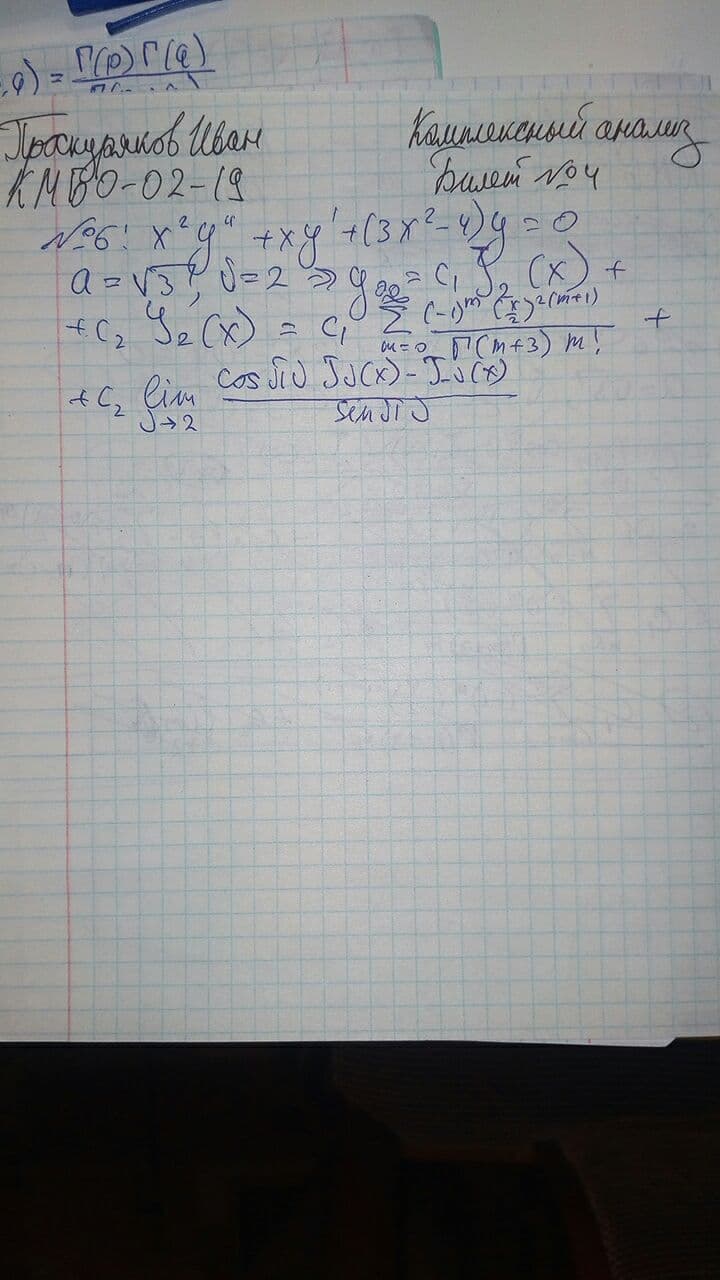 ,q) = Γ(p) Γ(q)
Проскуряков Иван
Комплексный анализ
КМБО-02-19
Билет №4
№6: x² y'' + xy' + (3x² - 4)y = 0
a = √3, ν = 2 ⇒ y₀₀ = C₁ J₂ (x) +
+ C₂ Y₂(x) = C₁ ∑_{m=0}^{∞} (-1)^m (x/2)^{2(m+1)} / Γ(m+3) m! +
+ C₂ lim_{ν→2} cos πν Jν(x) - J-ν(x) / sin πν